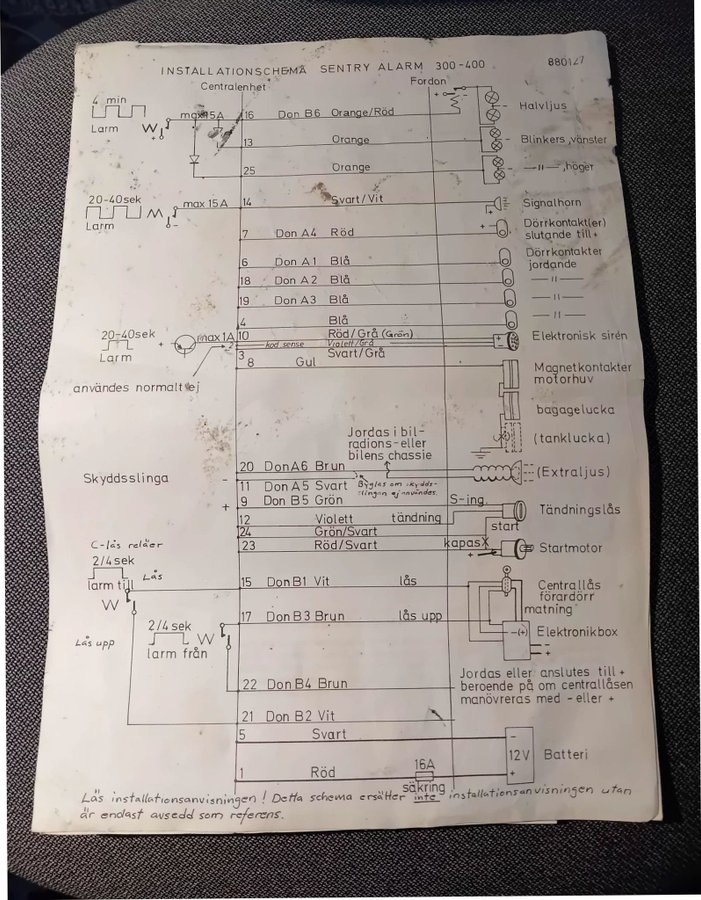 INSTALLATIONSCHEMA SENTRY ALARM 300-400 880127
Centralenhet Fordon
4 min
Larm
max 15A
16 Don B6 Orange/Röd Halvljus
13 Orange Blinkers, vänster
25 Orange —ıı— , höger
20-40sek
Larm
max 15A
14 Svart/Vit Signalhorn
7 Don A4 Röd Dörrkontakt(er)
slutande till +
6 Don A1 Blå Dörrkontakter
jordande
18 Don A2 Blå —ıı—
19 Don A3 Blå —ıı—
4 Blå —ıı—
20-40sek
Larm
max 1A
10 Röd/Grå (Grön) Elektronisk sirén
2 kod sense Violett/Grå
3 Svart/Grå
användes normalt ej
8 Gul Magnetkontakter
motorhuv
bagagelucka
(tanklucka)
Jordas i bil-
radions- eller
bilens chassie
Skyddsslinga
- 20 Don A6 Brun (Extraljus)
11 Don A5 Svart Byglas om skydds-
slingan ej användes.
+ 9 Don B5 Grön S-ing. Tändningslås
12 Violett tändning
24 Grön/Svart start
23 Röd/Svart kapas X Startmotor
C-lås reläer
2/4 sek
Lås
larm till
15 Don B1 Vit lås Centrallås
förardörr
matning
17 Don B3 Brun lås upp Elektronikbox
Lås upp
2/4 sek
larm från
22 Don B4 Brun
Jordas eller anslutes till +
beroende på om centrallåsen
manövreras med - eller +
21 Don B2 Vit
5 Svart
12V Batteri
1 Röd 16A
säkring
Läs installationsanvisningen! Detta schema ersätter inte installationsanvisningen utan
är endast avsedd som referens.